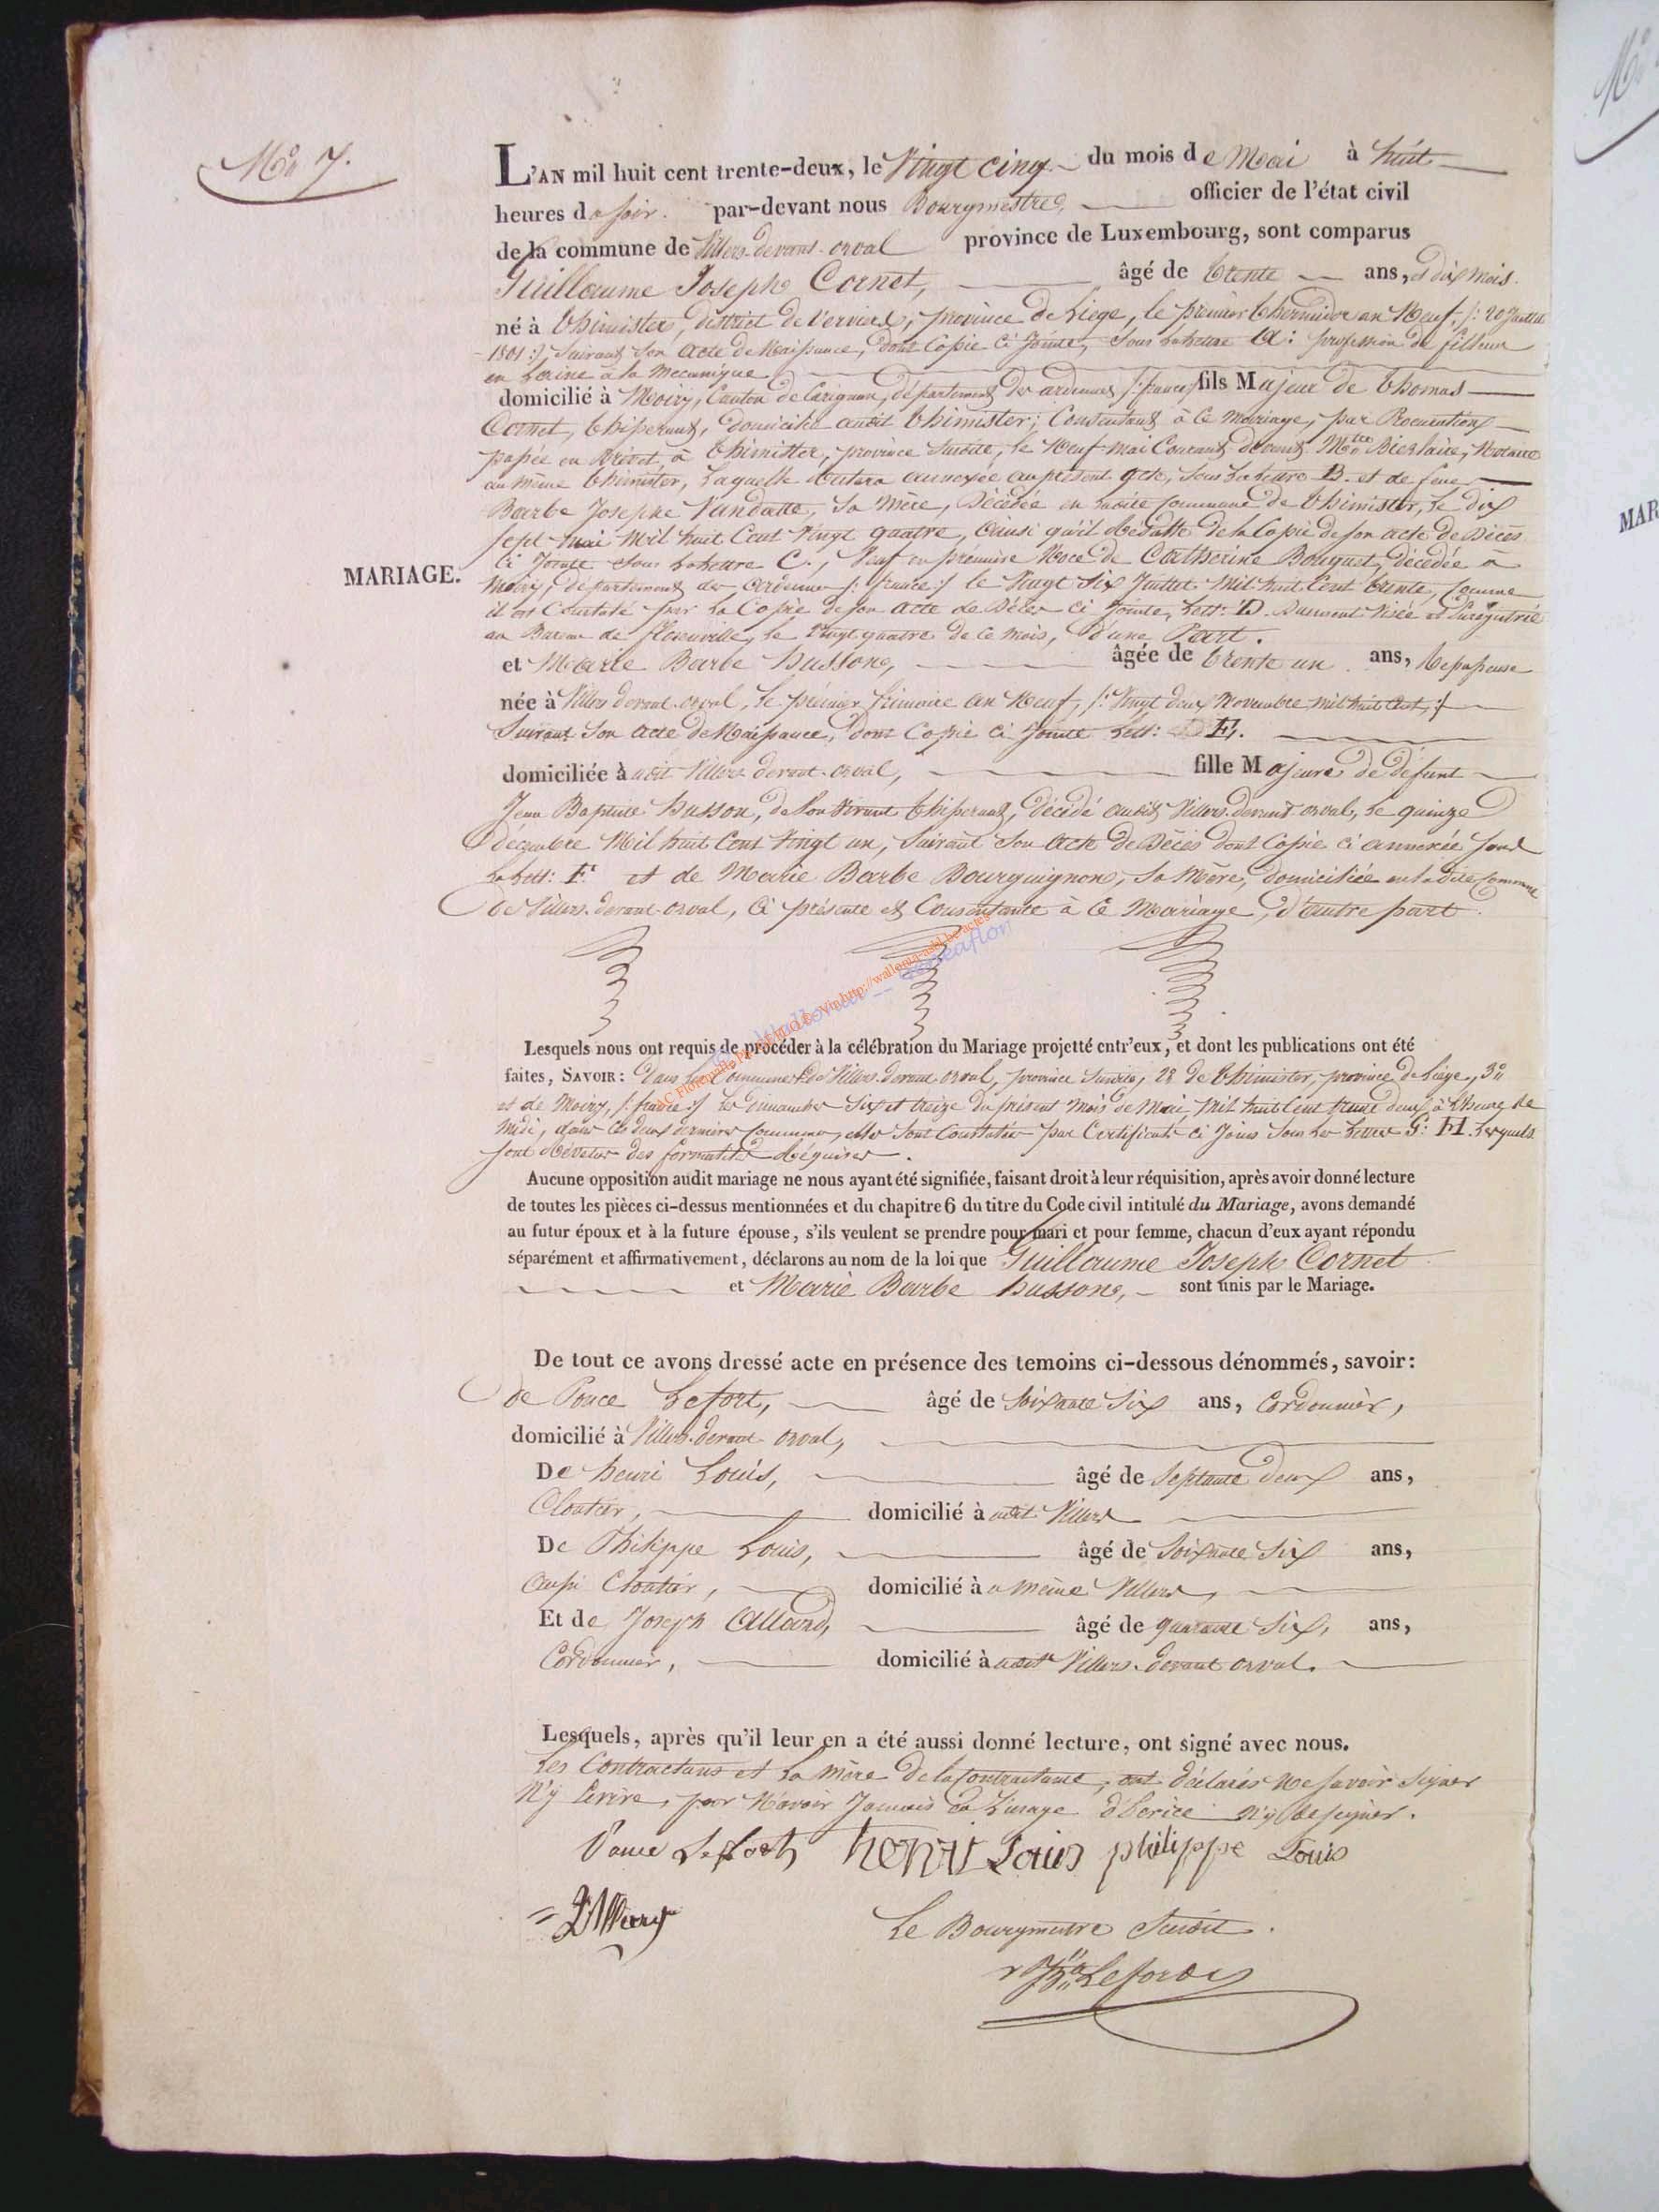 No 7.
L'AN mil huit cent trente-deux, le Vingt cinq du mois de Mai à huit
heures du soir. par-devant nous Bourgmestre, officier de l'état civil
de la commune de Villers-devant-orval province de Luxembourg, sont comparus
Guillaume Joseph Cornet, âgé de trente ans, et dix mois.
né à thimister, district de Verviers, province de Liège, le premier thermidor an Neuf, /: 20 Juillet
1801 :/ suivant son acte de Naissance, dont Copie ci Jointe, sous la lettre A: profession de fileur
en Laine à la mecanique
domicilié à Moiry, Canton de Carignan, département des ardennes /: france :/ fils Majeur de thomas
Cornet, thisserant, domicilié audit thimister; Consentant à ce mariage, par Procuration
passée en Brevet à thimister, province susdite, le Neuf mai Courant devant Mtre Notaire
au même thimister, Laquelle restera annexée au présent acte, sous la lettre B. et de feue
Barbe Josephe Vandatte, sa mère, Décédée en ladite Commune de thimister, le dix
sept mai Mil huit Cent Vingt quatre, ainsi qu'il Resulte de la Copie de son acte de Décès
ci Jointe sous la lettre C., Veuf en premiere Noce de Catherine Bouquet, décédée à
MARIAGE.
Moiry, département des Ardennes /: france :/ le Vingt six Juillet Mil huit Cent trente, Comme
il est Constaté par la Copie de son acte de Décès ci Jointe, Lett: D. Dument Visée et Enregistrée
au Bureau de florenville, le Vingt quatre de ce mois, d'une Part.
et Marie Barbe husson, âgée de trente un ans, Repasseuse
née à Villers devant-orval, le prémier frimaire an Neuf, /: Vingt deux Novembre mil huit Cent, :/
Suivant son acte de Naissance, dont Copie ci Jointe Lett: E.
domiciliée audit Villers devant-orval, fille Majeure de défunt
Jean Baptiste husson, de son Vivant thisserant, décédé audit Villers-devant-orval, le quinze
décembre Mil huit Cent Vingt un, suivant son acte de Décès dont Copie ci annexée sous
la Lett: F. et de Marie Barbe Bourguignon, sa Mère, domiciliée en ladite Commune
de Villers-devant-orval, ci présente et Consentante à ce Mariage, d'autre part.
Lesquels nous ont requis de procéder à la célébration du Mariage projetté entr'eux, et dont les publications ont été
faites, SAVOIR: dans la Commune de Villers-devant orval, province susdite, 2° de thimister, province de Liège, 3°
et de Moiry, /: france :/ les dimanches six et treize du présent mois de Mai Mil huit Cent trente deux à l'heure de
midi, dans ces deux dernières Communes, elles sont Constatées par Certificats ci Joins sous les Lettres G: H. Lesquels
sont Révetus des formalités Réquises.
Aucune opposition audit mariage ne nous ayant été signifiée, faisant droit à leur réquisition, après avoir donné lecture
de toutes les pièces ci-dessus mentionnées et du chapitre 6 du titre du Code civil intitulé du Mariage, avons demandé
au futur époux et à la future épouse, s'ils veulent se prendre pour mari et pour femme, chacun d'eux ayant répondu
séparément et affirmativement, déclarons au nom de la loi que Guillaume Joseph Cornet
et Marie Barbe husson, sont unis par le Mariage.
De tout ce avons dressé acte en présence des temoins ci-dessous dénommés, savoir:
de Ponce Lefort, âgé de Soixante Six ans, Cordonnier,
domicilié à Villers-devant orval,
De henri Louis, âgé de Septante deux ans,
Cloutier, domicilié audit Villers
De Philippe Louis, âgé de Soixante Six ans,
aussi Cloutier, domicilié au même Villers,
Et de Joseph Alland, âgé de quarante Six, ans,
Cordonnier, domicilié audit Villers-devant orval.
Lesquels, après qu'il leur en a été aussi donné lecture, ont signé avec nous.
Les Contractans et la mère de la Contractante, ont déclarés ne savoir signer
N'y Ecrire, pour N'avoir Jamais eu L'usage d'Ecrire N'y de signer.
Ponce Lefort henri Louis philippe Louis
Le Bourgmestre Susdit.